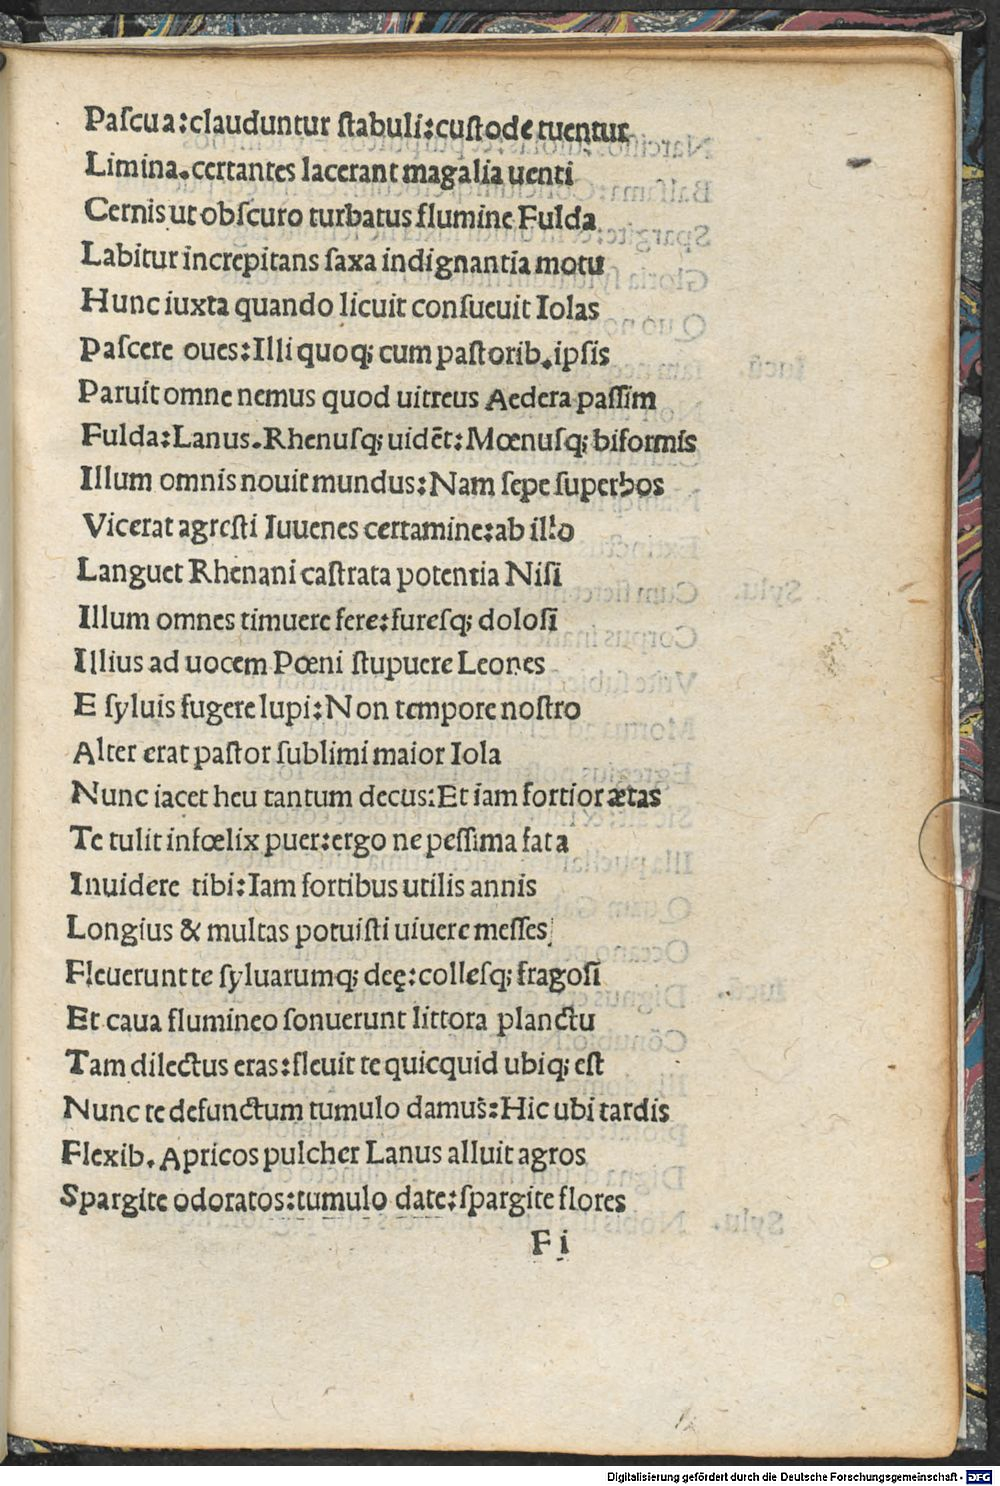 Paſcua:clauduntur ſtabuli:cuſtode tuentur
Limina.certantes lacerant magalia uenti
Cernis ut obſcuro turbatus flumine Fulda
Labitur increpitans ſaxa indignantia motu
Hunc iuxta quando licuit conſueuit Iolas
Paſcere oues:Illi quoq; cum paſtorib.ipſis
Paruit omne nemus quod uitreus Aedera paſſim
Fulda:Lanus.Rhenuſq; uidēt:Mœnuſq; biformis
Illum omnis nouit mundus:Nam ſepe ſuperbos
Vicerat agreſti Iuuenes certamine:ab illo
Languet Rhenani caſtrata potentia Niſi
Illum omnes timuere fere:fureſq; doloſi
Illius ad uocem Pœni ſtupuere Leones
E ſyluis fugere lupi:Non tempore noſtro
Alter erat paſtor ſublimi maior Iola
Nunc iacet heu tantum decus:Et iam fortior ætas
Te tulit infœlix puer:ergo ne peſſima fata
Inuidere tibi:Iam fortibus utilis annis
Longius & multas potuiſti uiuere meſſes
Fleuerunt te ſyluarumq; deę:colleſq; fragoſi
Et caua flumineo ſonuerunt littora planctu
Tam dilectus eras:fleuit te quicquid ubiq; eſt
Nunc te defunctum tumulo damus:Hic ubi tardis
Flexib.Apricos pulcher Lanus alluit agros
Spargite odoratos:tumulo date:ſpargite flores
F i
Digitalisierung gefördert durch die Deutsche Forschungsgemeinschaft - DFG